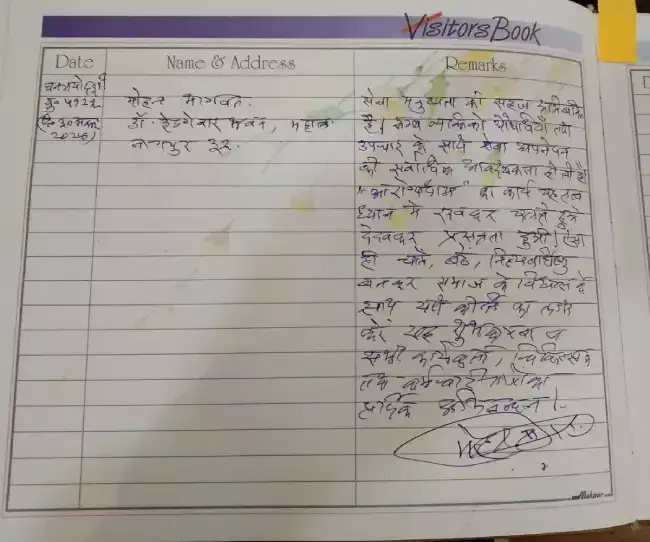 Visitors Book
Date
Name & Address
Remarks
यु० ५१२८
(दि. ३० मार्च
2026)
मोहन भागवत.
डॉ. हेडगेवार भवन, महाल
नागपुर ३२.
सेवा मनुष्यता की सहज अभिव्यक्ति
है। रुग्ण व्यक्ति को औषधियाँ तथा
उपचार के साथ सेवा अपनेपन
की सर्वाधिक आवश्यकता होती है।
"आरोग्यधाम" का कार्य यह तत्व
ध्यान में रखकर चलते हुए
देखकर प्रसन्नता हुई। ऐसा
ही चले, बढे, नित्यवर्धिष्णु
बनकर समाज के विश्वास के
साथ यश कीर्ति का लाभ
करे यह शुभकामना व
सभी कार्यकर्ता, चिकित्सक
तथा कर्मचारी
हार्दिक अभिनन्दन।